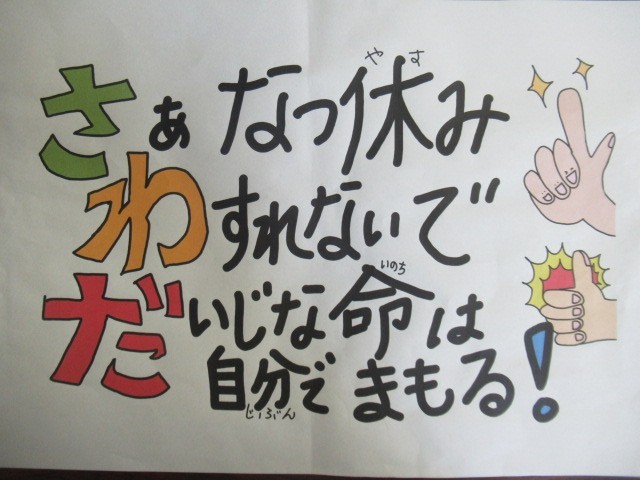 さぁ なつ休み
わすれないで
だいじな命は
自分で まもる!
やす
いのち
じぶん